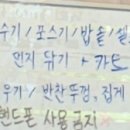 수기 / 포스기 / 밥솥 / 쉘
먼지 닦기 + 카트
우기 / 반찬뚜껑, 집게
핸드폰 사용 금지